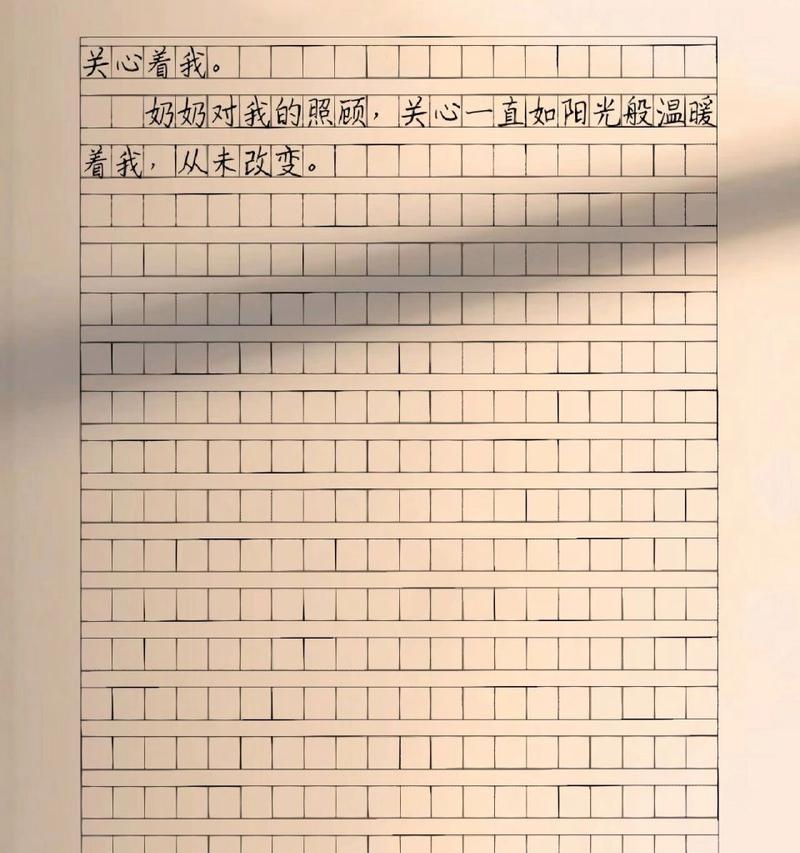 关心着我。
奶奶对我的照顾，关心一直如阳光般温暖
着我，从未改变。